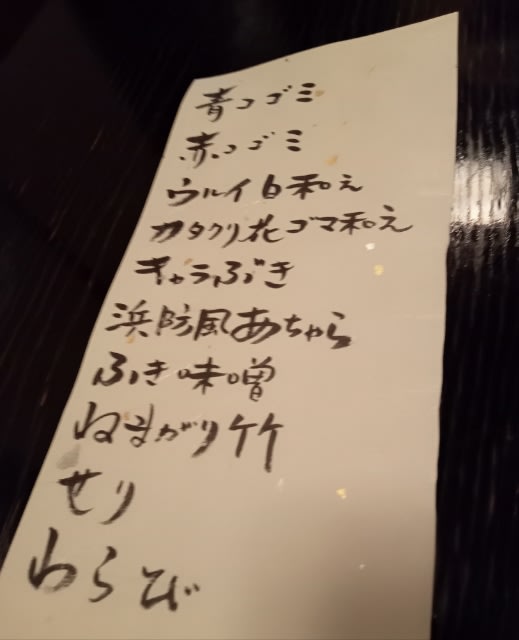 青コゴミ
赤コゴミ
ウルイ白和え
カタクリ花ゴマ和え
キャラぶき
浜防風あちゃら
ふき味噌
ねまがり竹
せり
わらび